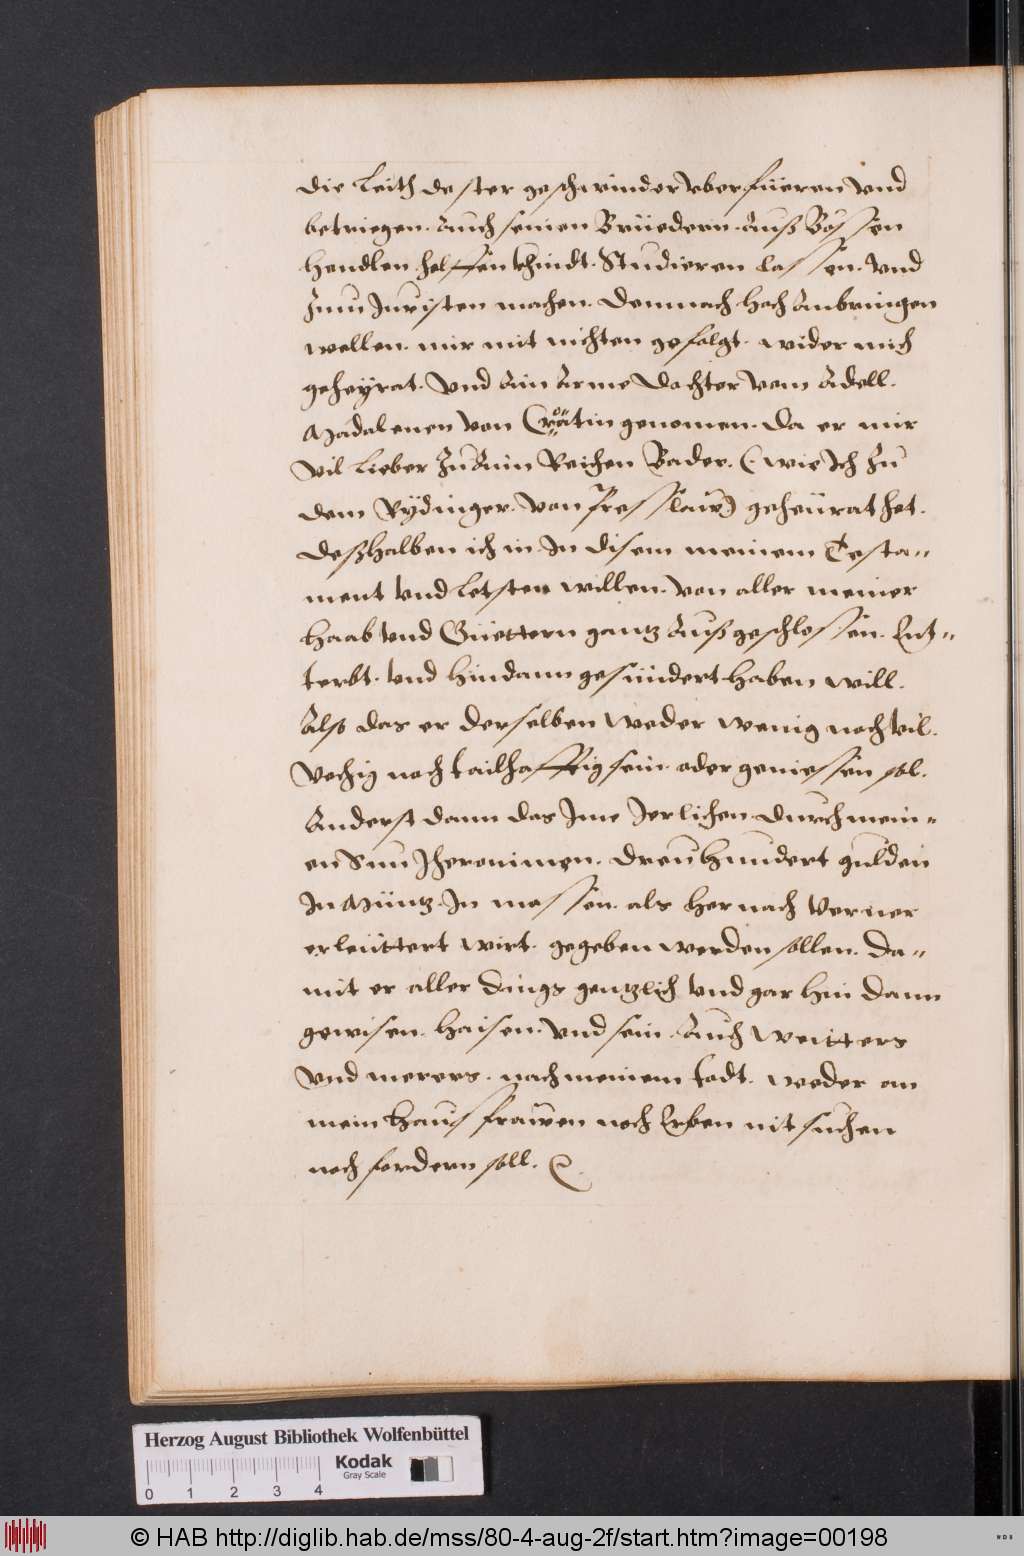 die Leith dester geschwinder vberfüeren vnd
betriegen. Auch seinen Brüedern. Auß Bossen
hendlen helffen khindt. Studieren lassen. vnd
Zuu Juristen machen. Demnach hoch Anbringen
wellen. mir mit nichten gefolgt. wider mich
geheyrat. Vnd Ain Arme Dochter vom Adell.
Madalenen von genomen. Da er mir
vil lieber Zu Ain Reichen Bader. (wie Ich Zu
dem Rydinger. von Presslaw) geheürat het.
Deßhalben ich in In disem meinem Testa=
ment vnd letsten willen. von aller meiner
haab vnd Güettern gantz Außgeschlossen. Ent=
terbt. vnd hindann gesündert haben will.
Also das er derselben weder wenig noch vil.
vechig noch tailhafftig sein. oder geniessen sol.
Anderst dann das Ime Jerlichen. durch mein=
en Sun Jheronimen. dreuhundert gulden
In Müntz. In massen. als hernach verner
erleüttert wirt. gegeben werden sollen. Da=
mit er aller dings gentzlich vnd gar hin dann
gewisen. haisen. vnd sein. Auch weitters
vnd merers. nach meinem todt. weder an
mein haussfrawen noch Erben nit suchen
noch fordern soll.
Herzog August Bibliothek Wolfenbüttel
Kodak
Gray Scale
0 1 2 3 4
© HAB http://diglib.hab.de/mss/80-4-aug-2f/start.htm?image=00198